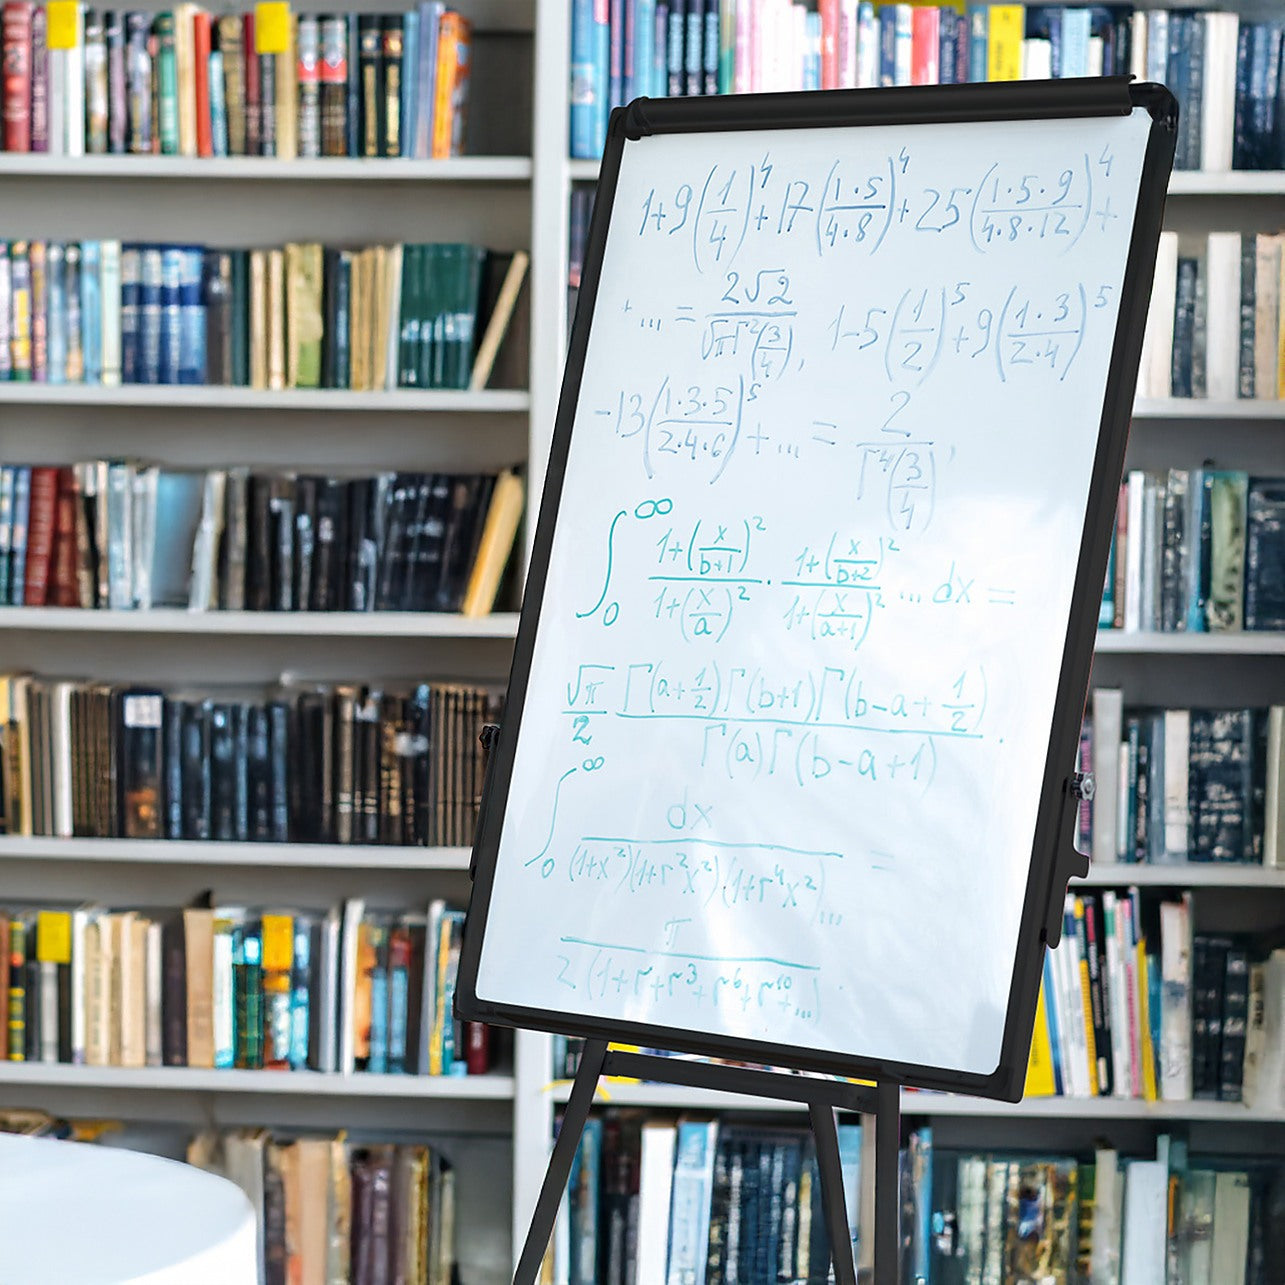 1+9(1/4)^4+17(1·5/4·8)^4+25(1·5·9/4·8·12)^4+
+...=2√2/√πΓ²(3/4), 1-5(1/2)^5+9(1·3/2·4)^5
-13(1·3·5/2·4·6)^5+...=2/Γ⁴(3/4),
∫₀^∞ 1+(x/b+1)²/1+(x/a)² · 1+(x/b+2)²/1+(x/a+1)² ... dx =
√π/2 Γ(a+1/2)Γ(b+1)Γ(b-a+1/2)/Γ(a)Γ(b-a+1).
∫₀^∞ dx/(1+x²)(1+r²x²)(1+r⁴x²)... =
π/2(1+r+r³+r⁶+r¹⁰+...).